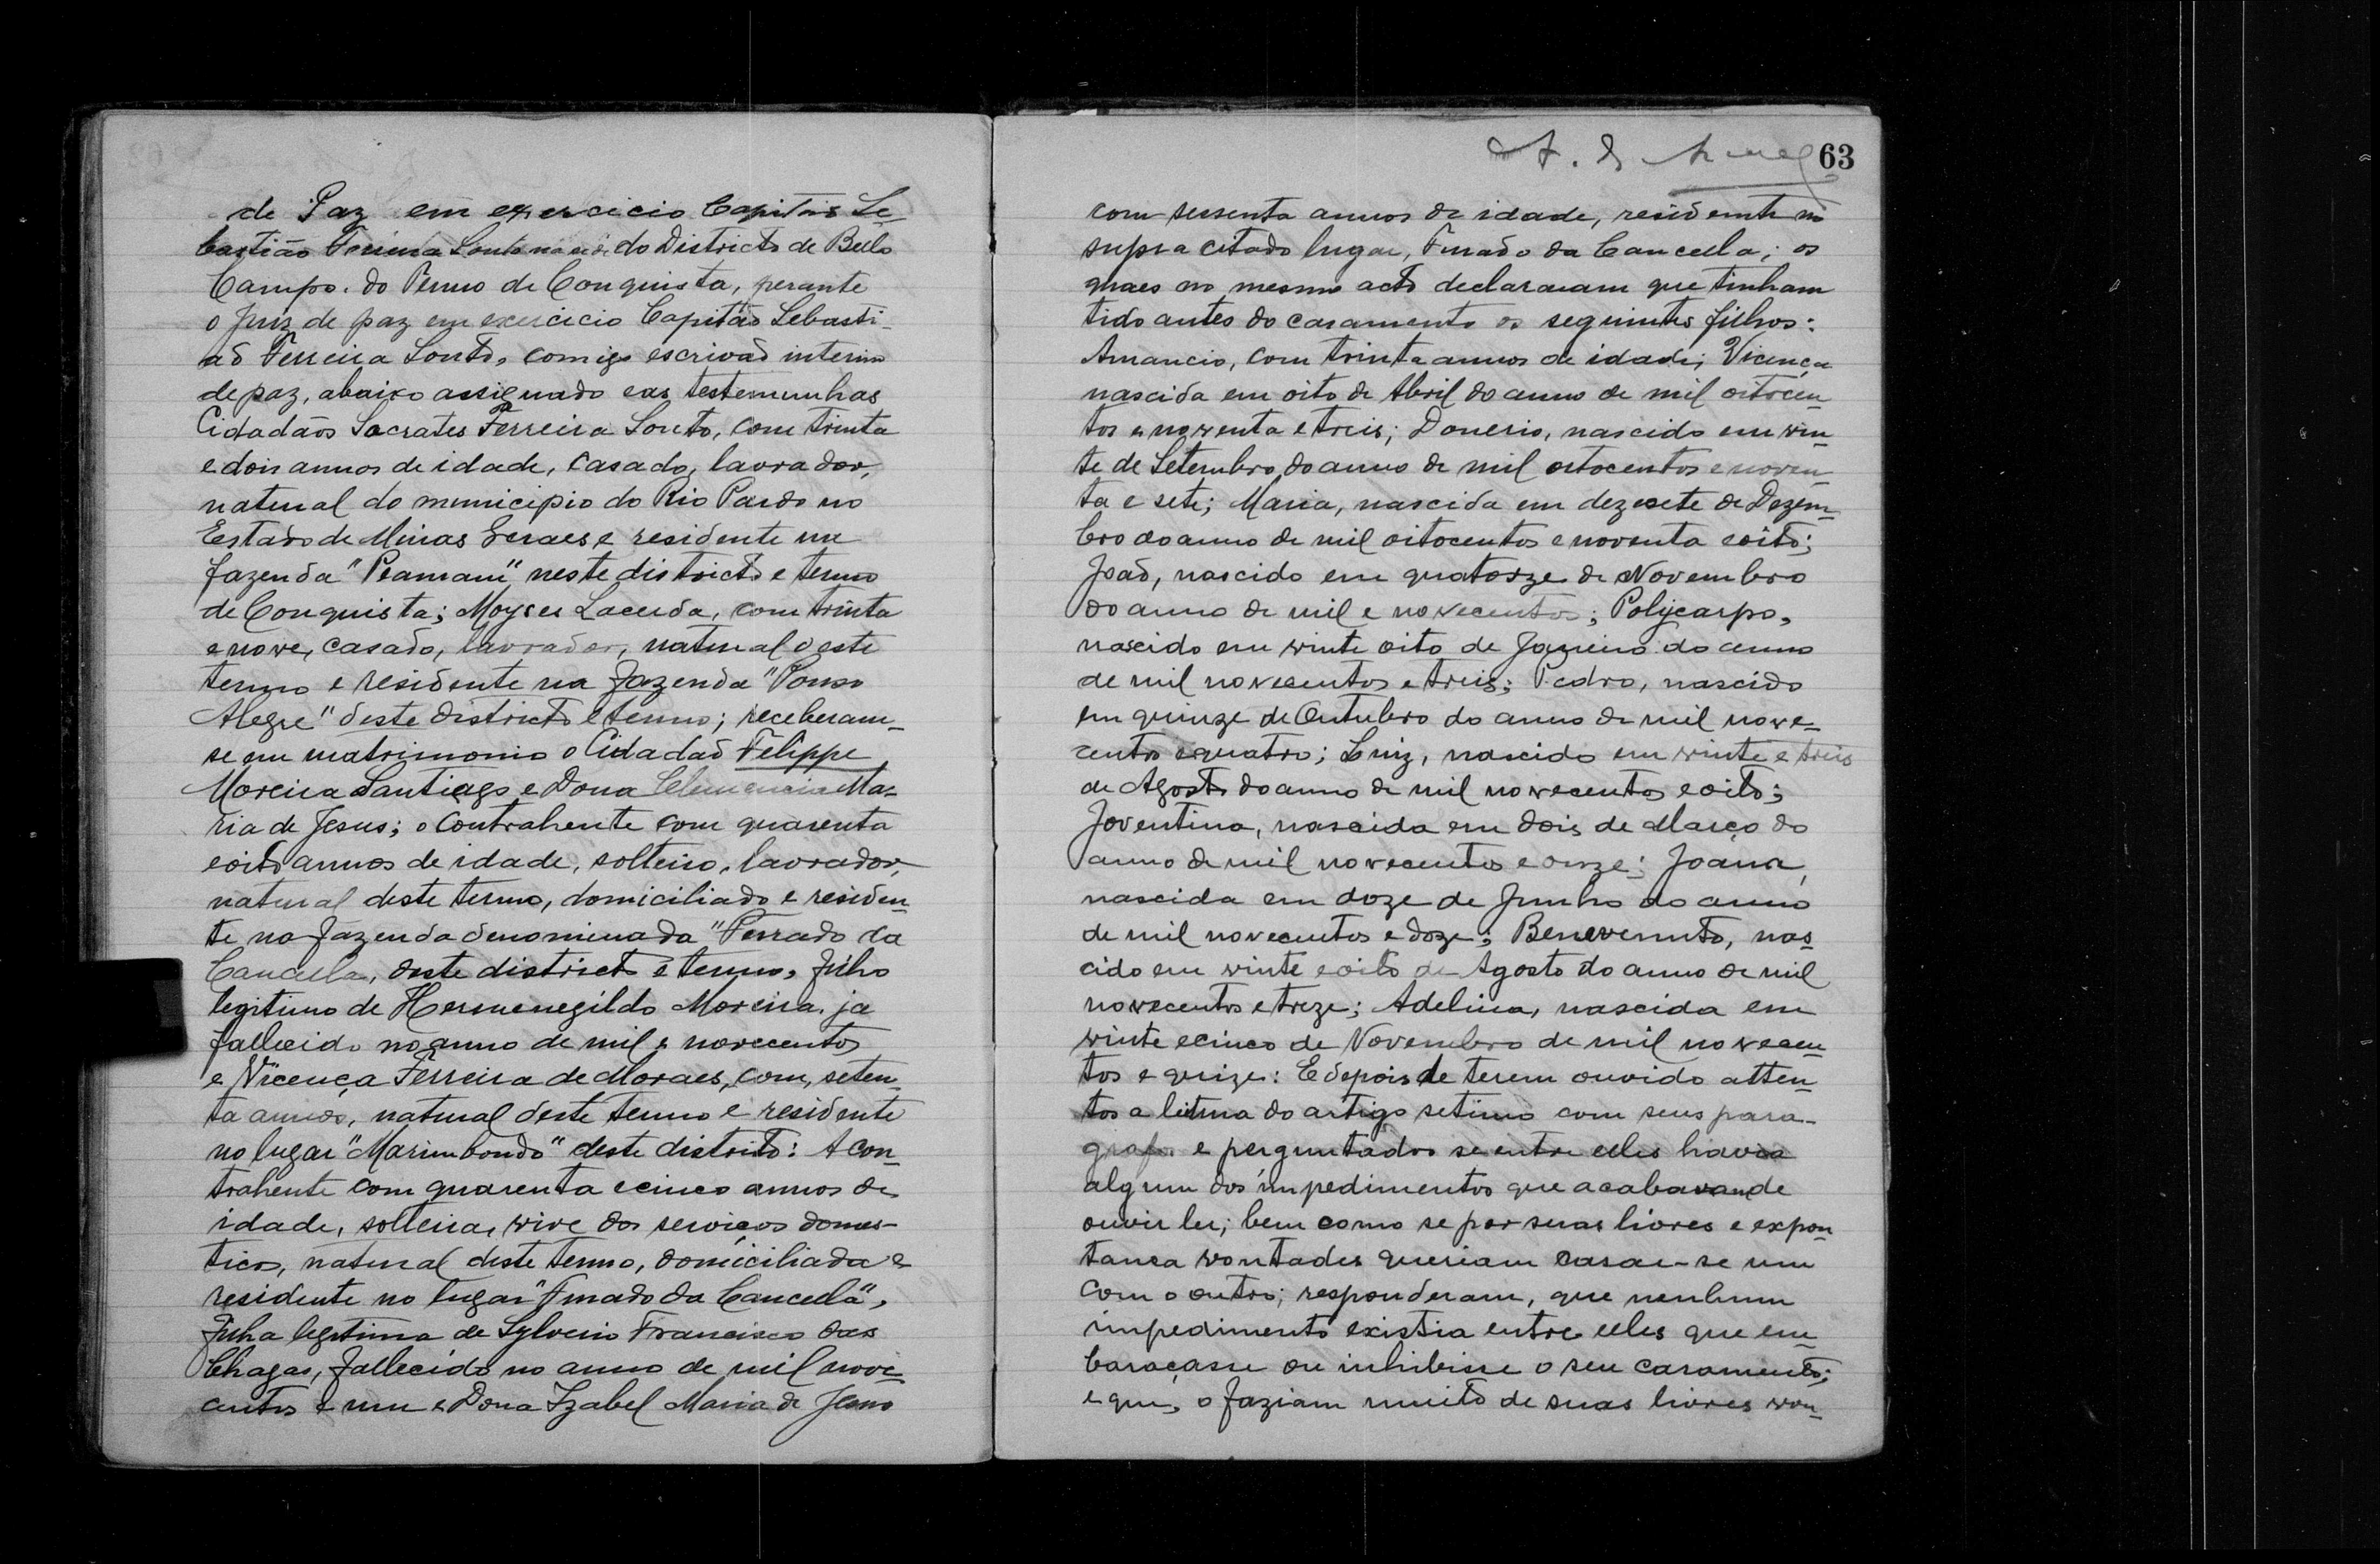 de Paz em exercicio Capitão Se-
bastião Ferreira Souto do Districto de Bello
Campo do Termo de Conquista, perante
o Juiz de paz em exercicio Capitão Sebasti-
ão Ferreira Souto, comigo escrivaõ interino
de paz, abaixo assignado e as testemunhas
Cidadãos Socrates Ferreira Souto, com trinta
e dois annos de idade, casado, lavrador,
natural do municipio do Rio Pardo no
Estado de Minas Geraes e residente na
fazenda "Peamam", neste districto e termo
de Conquista; Moyses Lacerda, com trinta
e nove, casado, lavrador, natural deste
termo e residente na fazenda "Pouso
Alegre" deste districto e termo; receberam-
se em matrimonio o Cidadaõ Felippe
Moreira Santiago e Dona Clemencia Ma-
ria de Jesus; o contrahente com quarenta
e oito annos de idade, solteiro, lavrador,
natural deste termo, domiciliado e residen-
te na fazenda denominada "Furado da
Cancella, deste districto e termo, filho
legitimo de Hermenegildo Moreira, ja
fallecido no anno de mil e novecentos
e Vicença Ferreira de Moraes, com, seten-
ta annos, natural deste termo e residente
no lugar "Marimbondo" deste districto: A con-
trahente com quarenta e cinco annos de
idade, solteira, vive dos serviços domes-
ticos, natural deste termo, domiciliada e
residente no lugar "Furado da Cancella",
filha legitima de Sylverio Francisco das
Chagas, fallecido no anno de mil nove-
centos e um e Dona Izabel Maria de Jesus
63
com sessenta annos de idade, residente no
supra citado lugar, Furado da Cancella; os
quaes no mesmo acto declararam que tinham
tido antes do casamento os seguintes filhos:
Amancio, com trinta annos de idade; Vicença
nascida em oito de Abril do anno de mil oitocen-
tos e noventa e treis; Donerio, nascido em vin-
te de Setembro do anno de mil oitocentos e noven-
ta e sete; Maria, nascida em dezesete de Dezem-
bro do anno de mil oitocentos e noventa e oito;
Joaõ, nascido em quatorze de Novembro
do anno de mil e novecentos; Polycarpo,
nascido em vinte oito de Janeiro do anno
de mil novecentos e treis; Pedro, nascido
em quinze de Outubro do anno de mil nove-
centos e quatro; Luiz, nascido em vinte e treis
de Agosto do anno de mil novecentos e oito;
Joventina, nascida em dois de Março do
anno de mil novecentos e onze; Joana,
nascida em doze de Junho do anno
de mil novecentos e doze; Benevenuto, nas-
cido em vinte e oito de Agosto do anno de mil
novecentos e treze; Adelina, nascida em
vinte e cinco de Novembro de mil novecen-
tos e quize: E depois de terem ouvido atten-
tos a leitura do artigo setimo com seus para-
grafos e perguntados se entre elles havia
algum dos impedimentos que acabavam de
ouvir ler; bem como se por suas livres e expon-
tanea vontades queriam casar-se um
com o outro; responderam, que nenhum
impedimento existia entre elles que em-
baraçasse ou inhibisse o seu casamento;
e que, o faziam muito de suas livres von-